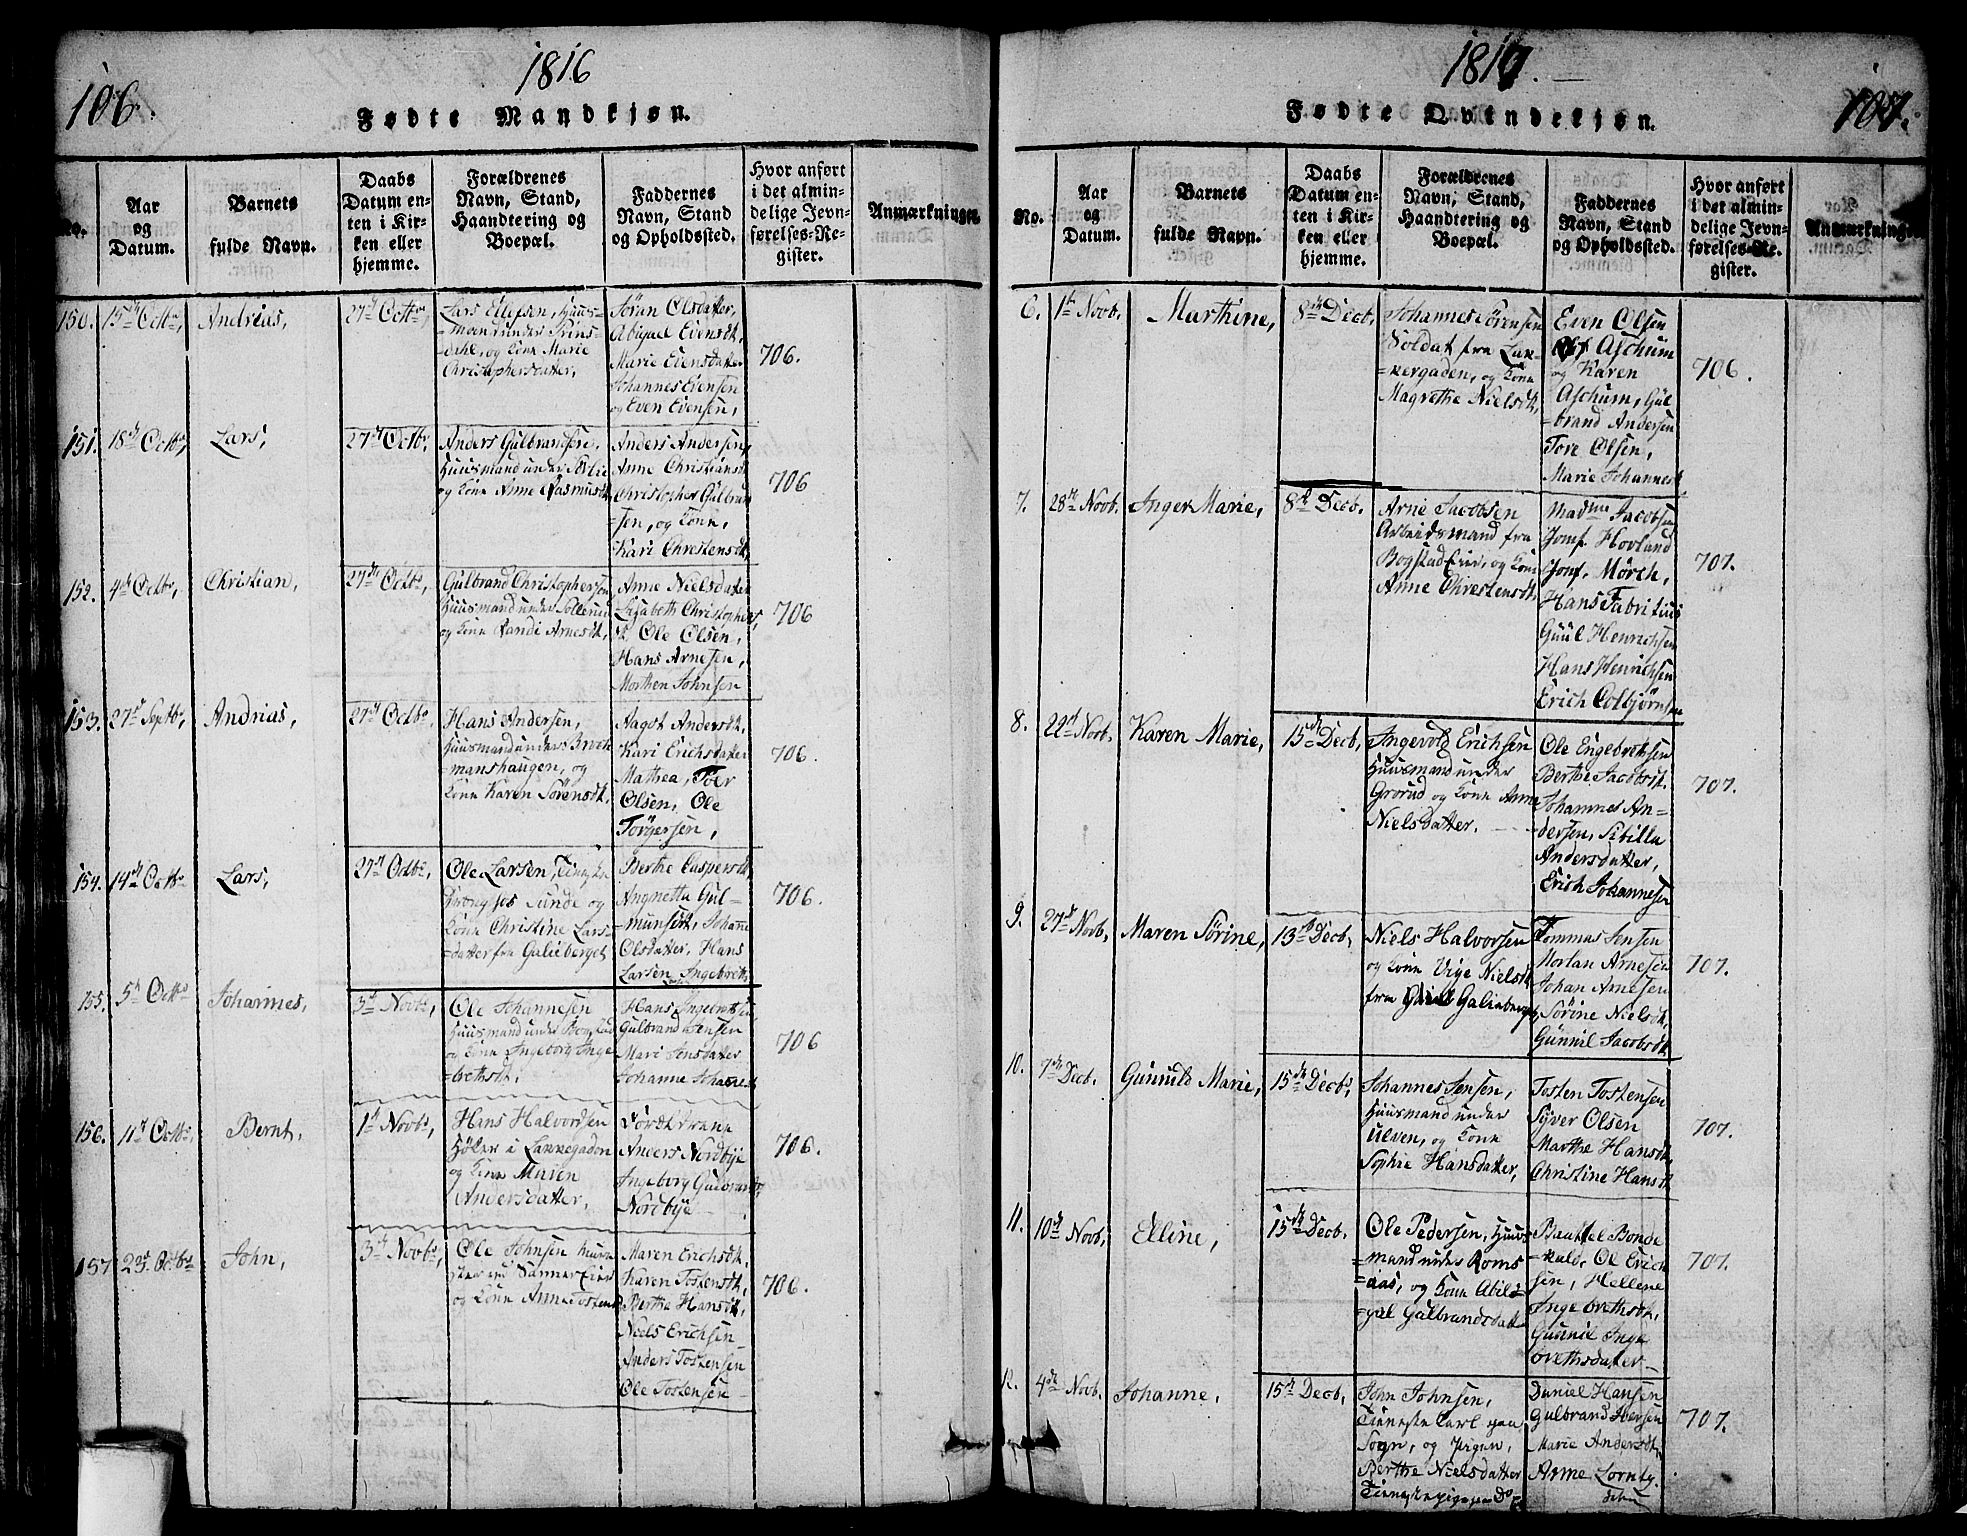 106.
1816
Fødte Mandkjøn.
No.
Aar
og
Datum.
Barnets
fulde Navn.
Daabs
Datum en-
ten i Kir-
ken eller
hjemme.
Forældrenes
Navn, Stand,
Haandtering og
Boepæl.
Faddernes
Navn, Stand
og Opholdssted.
Hvor anført
i det almin-
delige Jevn-
førelses-Re-
gister.
Anmærkninger.
150.
15de Octbr,
Andrias,
27de Octbr,
Lars Ellefsen, Huus-
-moen under Prins-
-dahl, og Kone Marie
Christophersdatter,
Søran Olsdatter,
Abigael Evensdt,
Marie Evensdatter
Johannes Evensen
og Even Evensen,
706.
151.
18de Octbr,
Lars,
27de Octbr,
Anders Gulbrandsen,
Huusmand under
og Kone Anne Rasmusdt,
Anders Andersen,
Anne Christiansdt
Christopher Gulbrand
-sen, og Kone,
Kari Christensdt,
706
152.
4de Octbr,
Christian,
27de Octbr,
Gulbrand Christophersen
Huusmand under Sollerud
og Kone Randi Arnesdt,
Anne Nielsdatter
Lisabeth Christophers
dt, Ole Olsen,
Hans Arnesen,
Morthen Johnsen
706
153.
27de Septbr,
Andrias,
27de Octbr,
Hans Andersen,
Huusmand under Broch
-manshaugen, og
Kone Karen Sørensdt,
Aagot Andersdt,
Kari Erichsdatter
Mathea, Toer
Olsen, Ole
Torgersen,
706.
154.
14de Octbr
Lars,
27de Octbr,
Ole Larsen,
Sunde og
Kone Christine Lars-
-datter fra Galieberget
Berthe Caspersdt
Angnetta Gul-
-munsdt, Johanne
Olsdatter, Hans
Larsen, Ingebreth
706.
155.
5te Octbr
Johannes,
3de Novbr,
Ole Johannesen
Huusmand under Bogstad
og Kone Ingeborg Inge
-brethsdt.
Hans Ingebretsen
Gulbrand Jensen
Mari Jensdatter
Johanne Johannesdt
706
156.
11te Octbr,
Bernt,
1te Novbr,
Hans Halvordsen
Høker i Lakkegaden
og Kone Maren
Andersdatter,
Anders Nordbye
Ingeborg Gulbrands
Nordbye
706.
157
23de Octbr
John,
3de Novbr,
Ole Johnsen
og Kone Anne Tostens
Maren Erichsdt,
Karen Tostensdt,
Berthe Hansdt,
Niels Erichsen
Anders Tostensen
Ole Tostensen
706.
1816.
107.
Fødte Qvindekjøn.
No.
Aar
og
Datum.
Barnets
fulde Navn.
Daabs
Datum en-
ten i Kir-
ken eller
hjemme.
Forældrenes
Navn, Stand,
Haandtering og
Boepæl.
Faddernes
Navn, Stand
og Opholdssted.
Hvor anført
i det almin-
delige Jevn-
førelses-Re-
gister.
Anmærkninger
6.
1te Novb.
Marthine,
8de Decb,
Johannes Sørensen
Soldat fra Lak-
-kergaden, og Kone
Magrethe Nielsdt,
Even Olsen
Aschum
og Karen
Aschum, Gul
brand Andersen
Tore Olsen,
Marie Johannesdt
706.
7.
28de Novb.
Inger Marie,
8de Decb.
Arne Jacobsen
Arbeidsmand fra
Bogstad Eier, og Kone
Anne Christensdt,
Madme Jacobsen
Jomf. Hovland
Jomf. Mörch,
Hans Fabritius
Guul Henrichsen
Hans Henrichsen
Erich Colbjørnsen
707.
8.
22de Novb.
Karen Marie,
15de Decb,
Ingevold Erichsen
Huusmand under
Grorud og Kone Anne
Nielsdatter.
Ole Engebrethsen
Berthe Jacobsdt.
Johannes An-
dersen, Sibilla
Andersdatter,
Erich Johannesen
707.
9.
27de Novb,
Maren Sörine,
13de Decb,
Niels Halvorsen
og Kone Vige Nielsdt
fra Galieberget,
Tommas Jensen
Nortan Arnesen
Johan Arnesen
Sörine Nielsdt,
Gunnil Jacobsdt
707.
10.
7de Decb.
Gunnild Marie,
15de Decbr
Johannes Jensen,
Huusmand under
Ulven, og Kone
Sophie Hansdatter,
Tosten Tostensen
Syver Olsen
Marthe Hansdt,
Christine Hansdt
707.
11.
10de Novb,
Elline,
15de Decb.
Ole Pedersen, Huus
-mand under Roms
=aas, og Kone Abi-
=gal Gulbrandsdatter
Bonde
Ole Erich
sen, Hellene
Ingebrethsdt,
Gunnil Inge
brethsdatter-
707.
12.
4de Novb.
Johanne,
15de Decb,
John Johnsen,
Tieneste Karl paa
Sogn, og Pigen,
Berthe Nielsdatter
Tienestepige paa do
Daniel Hansen
Gulbrand Iversen
Marie Andersdt,
Anne Lornty.
707.